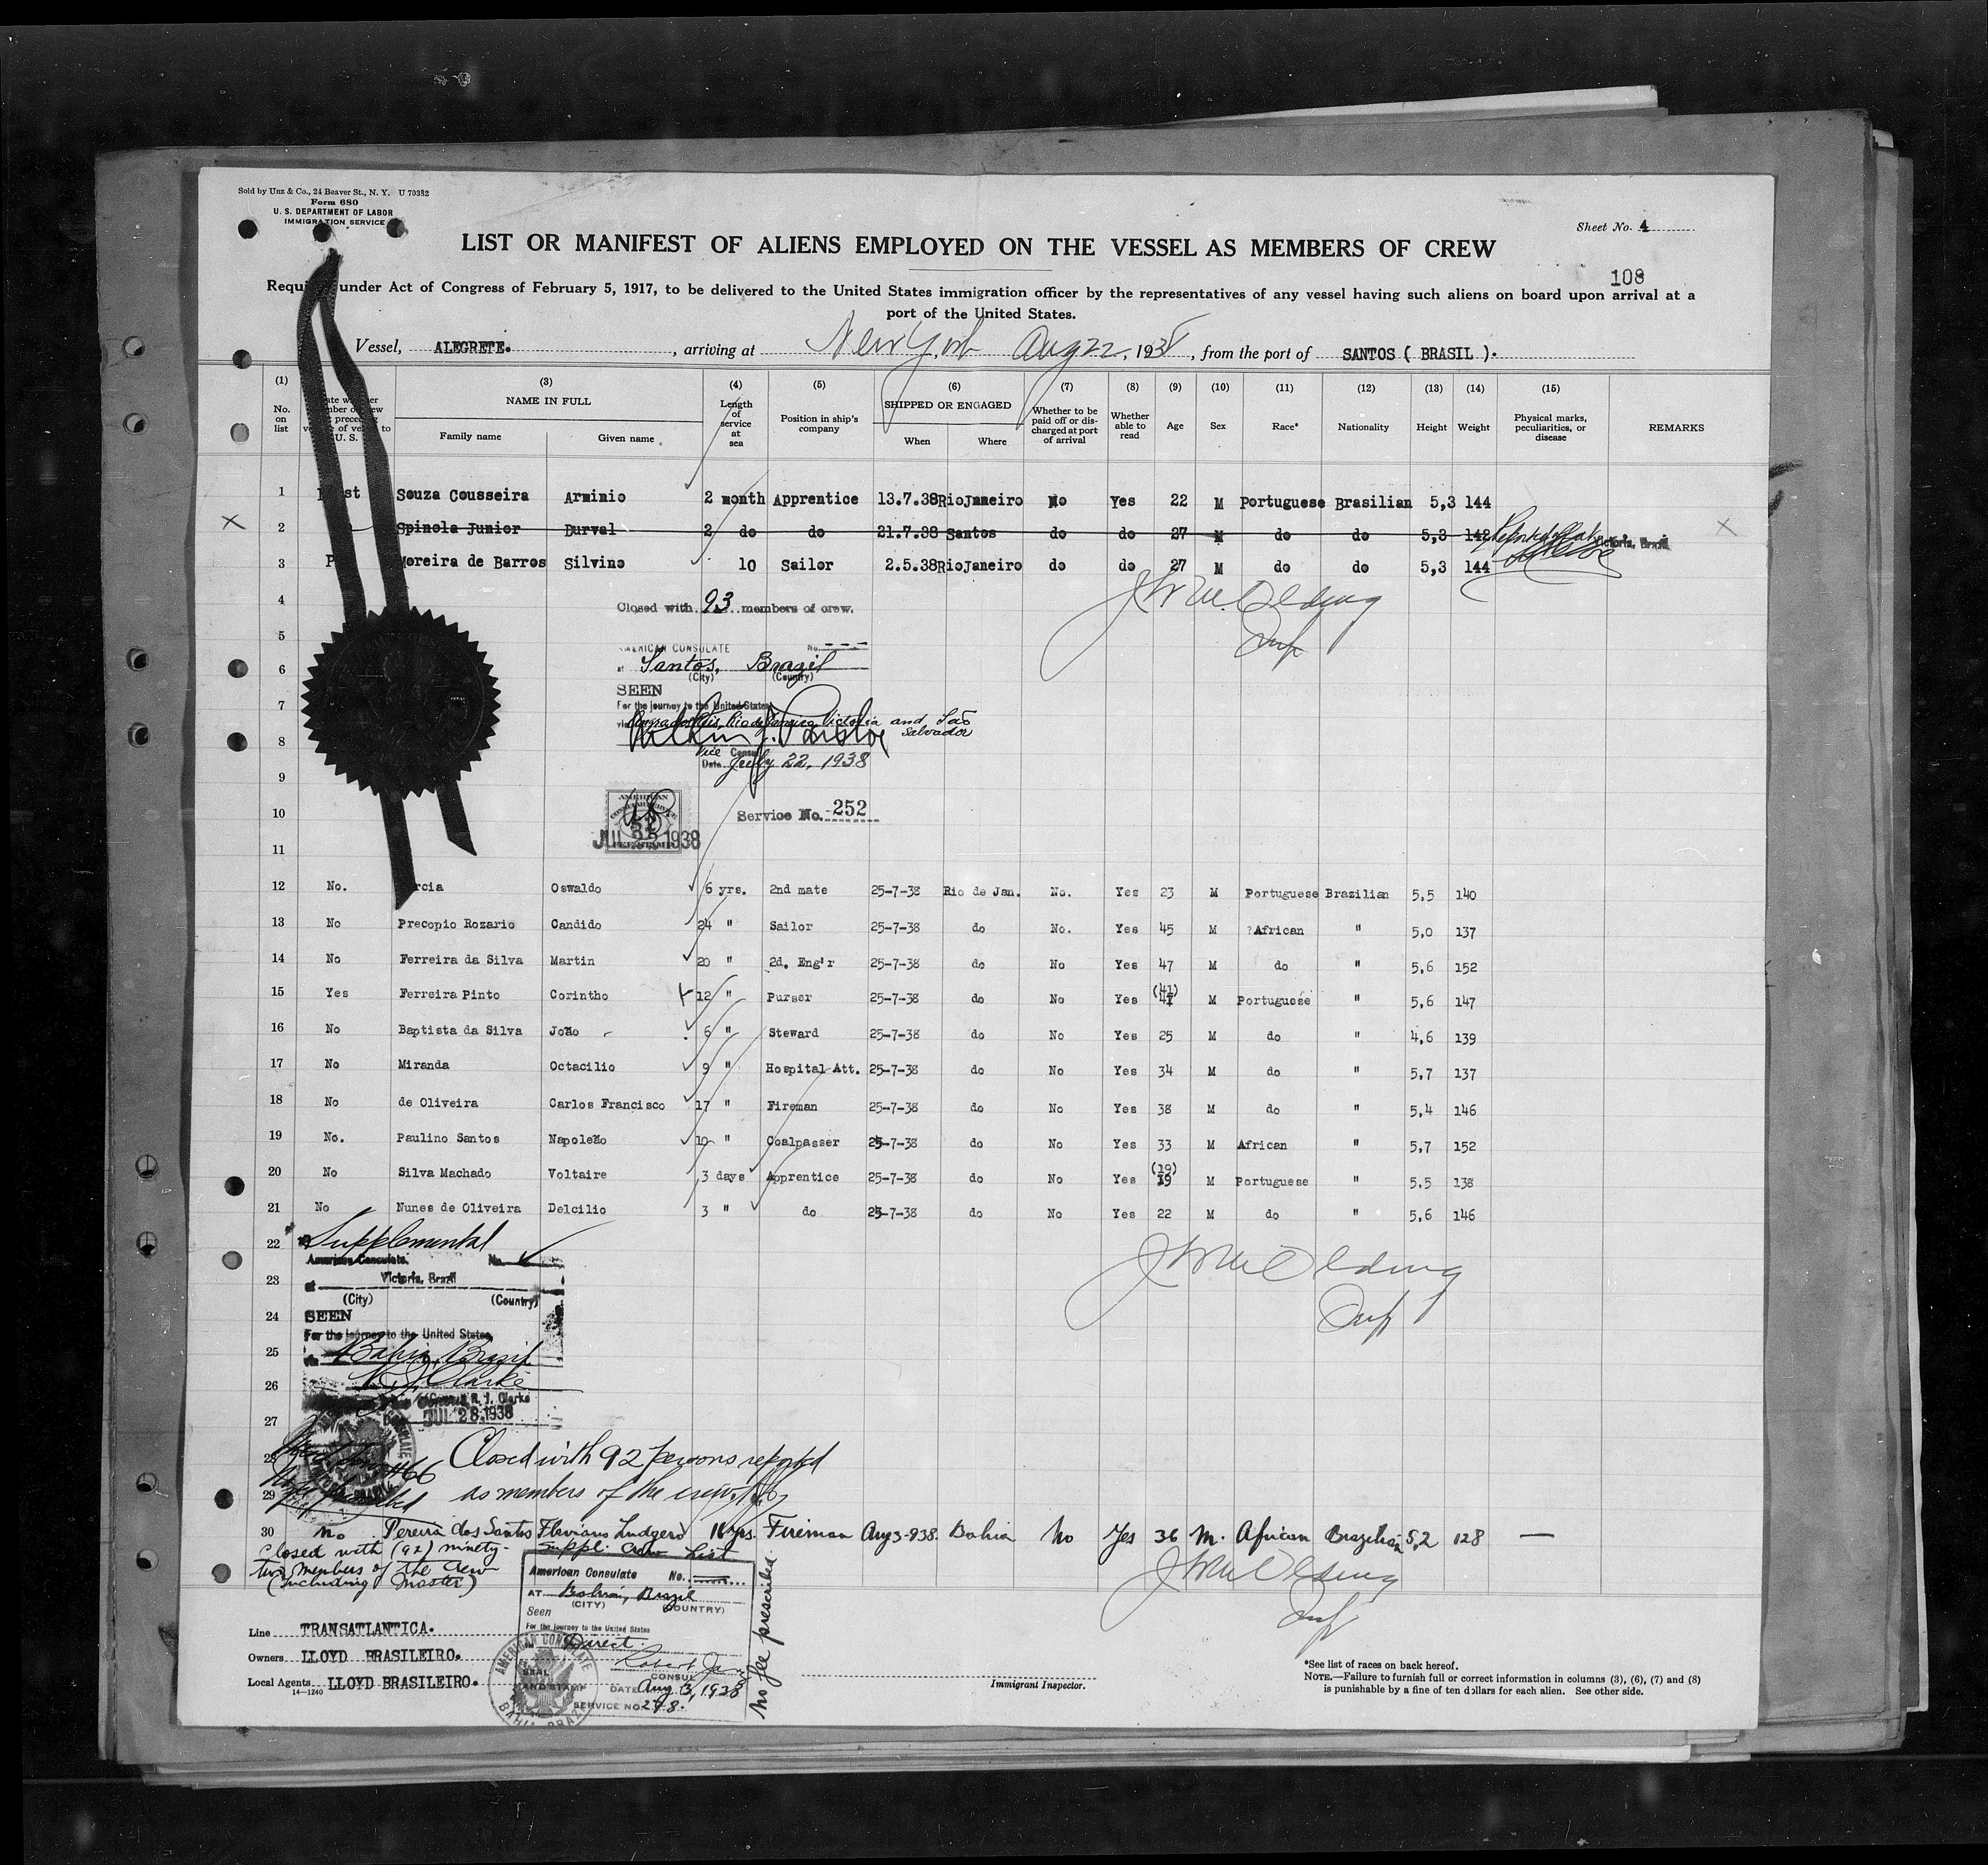 Sold by Unz & Co., 24 Beaver St., N. Y. U 70382
Form 680
U. S. DEPARTMENT OF LABOR
IMMIGRATION SERVICE
Sheet No. 4
LIST OR MANIFEST OF ALIENS EMPLOYED ON THE VESSEL AS MEMBERS OF CREW
108
under Act of Congress of February 5, 1917, to be delivered to the United States immigration officer by the representatives of any vessel having such aliens on board upon arrival at a
port of the United States.
Vessel, ALEGRETE. , arriving at New York Aug 22, 1938, from the port of SANTOS ( BRASIL ).
(1) (3) (4) (5) (6) (7) (8) (9) (10) (11) (12) (13) (14) (15)
No. on list
NAME IN FULL
Family name Given name
Length of service at sea
Position in ship's company
SHIPPED OR ENGAGED
When Where
Whether to be paid off or discharged at port of arrival
Whether able to read
Age Sex Race* Nationality Height Weight
Physical marks, peculiarities, or disease
REMARKS
1 Souza Cousseira Arminio 2 month Apprentice 13.7.38 RioJaneiro No Yes 22 M Portuguese Brasilian 5,3 144
2 Spinola Junior Durval 2 do do 21.7.38 Santos do do 27 M do do 5,3 142 Victoria, Brazil
3 Moreira de Barros Silvino 10 Sailor 2.5.38 RioJaneiro do do 27 M do do 5,3 144
4 Closed with 93 members of crew.
5
AMERICAN CONSULATE No.
6 at Santos, Brazil
(City) (Country)
SEEN
7 For the journey to the United States
Rio de Janeiro Victoria and São
8 Salvador
Vice Consul
Date July 22, 1938
9
10 Service No. 252
AMERICAN
JUL 22 1938
11
12 No. Oswaldo 6 yrs. 2nd mate 25-7-38 Rio de Jan. No. Yes 23 M Portuguese Brazilian 5,5 140
13 No Precopio Rozario Candido 24 " Sailor 25-7-38 do No. Yes 45 M ?African " 5,0 137
14 No Ferreira da Silva Martin 20 " 2d. Eng'r 25-7-38 do No Yes 47 M do " 5,6 152
15 Yes Ferreira Pinto Corintho 12 " Purser 25-7-38 do No Yes (41) 41 M Portuguese " 5,6 147
16 No Baptista da Silva João 6 " Steward 25-7-38 do No Yes 25 M do " 4,6 139
17 No Miranda Octacilio 9 " Hospital Att. 25-7-38 do No Yes 34 M do " 5,7 137
18 No de Oliveira Carlos Francisco 17 " Fireman 25-7-38 do No Yes 38 M do " 5,4 146
19 No. Paulino Santos Napoleão 10 " Coalpasser 25-7-38 do No Yes 33 M African " 5,7 152
20 No Silva Machado Voltaire 3 days Apprentice 25-7-38 do No Yes (19) 19 M Portuguese " 5.5 138
21 No Nunes de Oliveira Delcilio 3 " do 25-7-38 do No Yes 22 M do " 5,6 146
22 Supplemental
American Consulate. No.
23 at Victoria, Brazil
(City) (Country)
24 SEEN
For the journey to the United States
25 Bahia, Brasil
26 R. J. Clarke
Consul R. J. Clarke
JUL 28 1938
27
28 Closed with 92 persons reported
29 as members of the crew.
30 no Pereira dos Santos Flaviano Ludgero 16 yrs. Fireman Aug 3-938 Bahia No Yes 36 M. African Brazilian 5,2 128 —
Closed with (92) ninety-
two members of the Crew
(including master)
Suppl. Crew List
American Consulate No.
AT Bahia, Brazil
(CITY) (COUNTRY)
Seen
For the journey to the United States
Direct.
CONSUL
DATE Aug 3, 1938
SERVICE NO. 278.
No fee prescribed.
Line TRANSATLANTICA.
Owners LLOYD BRASILEIRO.
Local Agents LLOYD BRASILEIRO.
14-1240
Immigrant Inspector.
*See list of races on back hereof.
NOTE.—Failure to furnish full or correct information in columns (3), (6), (7) and (8)
is punishable by a fine of ten dollars for each alien. See other side.